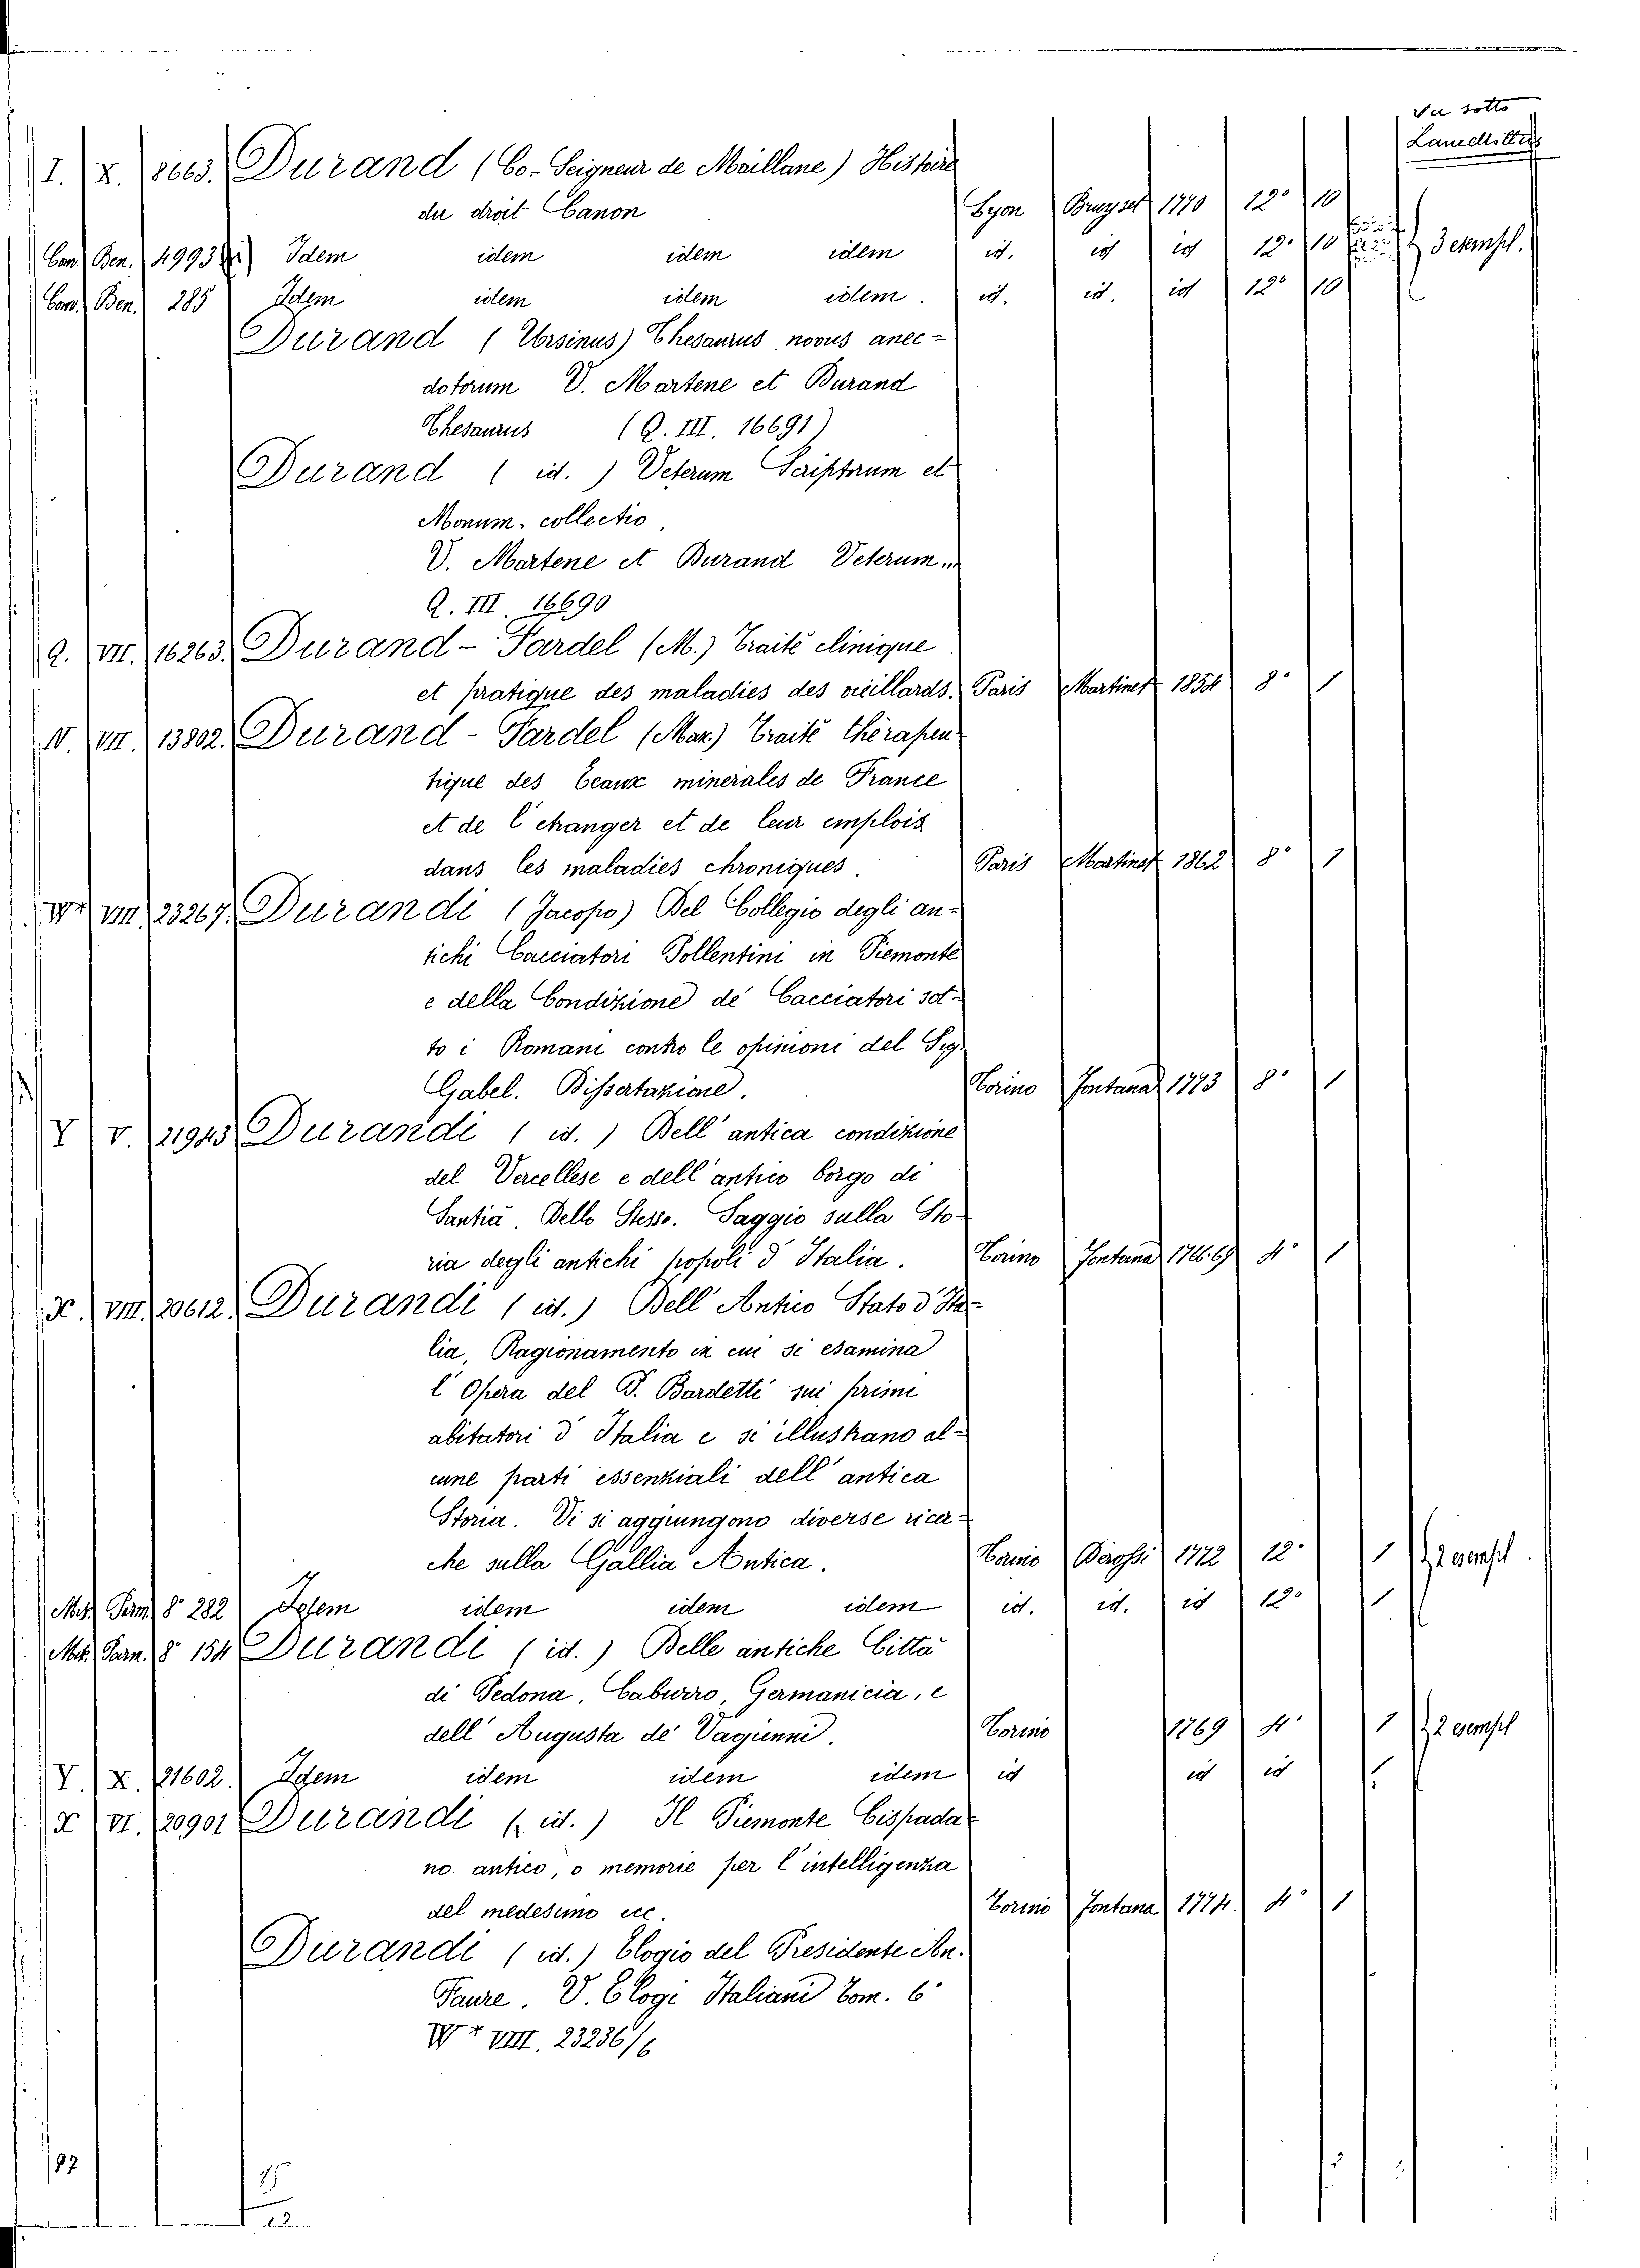 Va sotto
I. X. 8663. Durand (Co-Seigneur de Maillane) Histoire
du droit Canon Lyon Bruyset 1770 12° 10
Can. Ben. 4993 Idem idem idem idem id. id id 12. 10 3 esempl.
Can. Ben. 285 Idem idem idem idem. id. id. id 12° 10
Durand (Ursinus) Thesaurus novus anec-
dotorum V. Martene et Durand
Thesaurus (Q. III. 16691)
Durand (id.) Veterum Scriptorum et
Monum. collectio,
V. Martene et Durand Veterum..
Q. III. 16690
Q. VII. 16263. Durand-Fardel (M.) Traité clinique
et pratique des maladies des vieillards. Paris Martinet 1854 8° 1
N. VII. 13802. Durand-Fardel (Max.) Traité thérapeu-
tique des Eeaux minerales de France
et de l'etranger et de leur emplois
dans les maladies chroniques. Paris Martinet 1862 8° 1
W+ VIII. 23267. Durandi (Jacopo) Del Collegio degli an-
tichi Cacciatori Pollentini in Piemonte
e della Condizione de' Cacciatori sot-
to i Romani contro le opinioni del Sig.
Gabel. Dissertazione. Torino Fontana 1773 8° 1
Y V. 21943 Durandi (id.) Dell'antica condizione
del Vercellese e dell'antico borgo di
Santià. Dello Stesso. Saggio sulla Sto-
ria degli antichi popoli d'Italia. Torino Fontana 1766.69 4° 1
X. VIII. 20612. Durandi (id.) Dell'Antico Stato d'Ita-
lia, Ragionamento in cui si esamina
l'Opera del P. Bardetti sui primi
abitatori d'Italia e si illustrano al-
cune parti essenziali dell'antica
Storia. Vi si aggiungono diverse ricer-
che sulla Gallia Antica. Torino Derossi 1772 12° 1 2 esempl.
Mst. Parn. 8° 282 Idem idem idem idem id. id. id 12° 1
Mst. Parn. 8° 154 Durandi (id.) Delle antiche Città
di Pedona, Caburro, Germanicia, e
dell'Augusta de' Vagienni. Torino 1769 4° 1 2 esempl
Y. X. 21602. Idem idem idem idem id id id 1
X VI. 20901 Durandi (id.) Il Piemonte Cispada-
no. antico, o memorie per l'intelligenza
del medesimo ecc. Torino Fontana 1774. 4° 1
Durandi (id.) Elogio del Presidente An.
Faure. V. Elogi Italiani Tom. 6°
W+ VIII. 23236/6